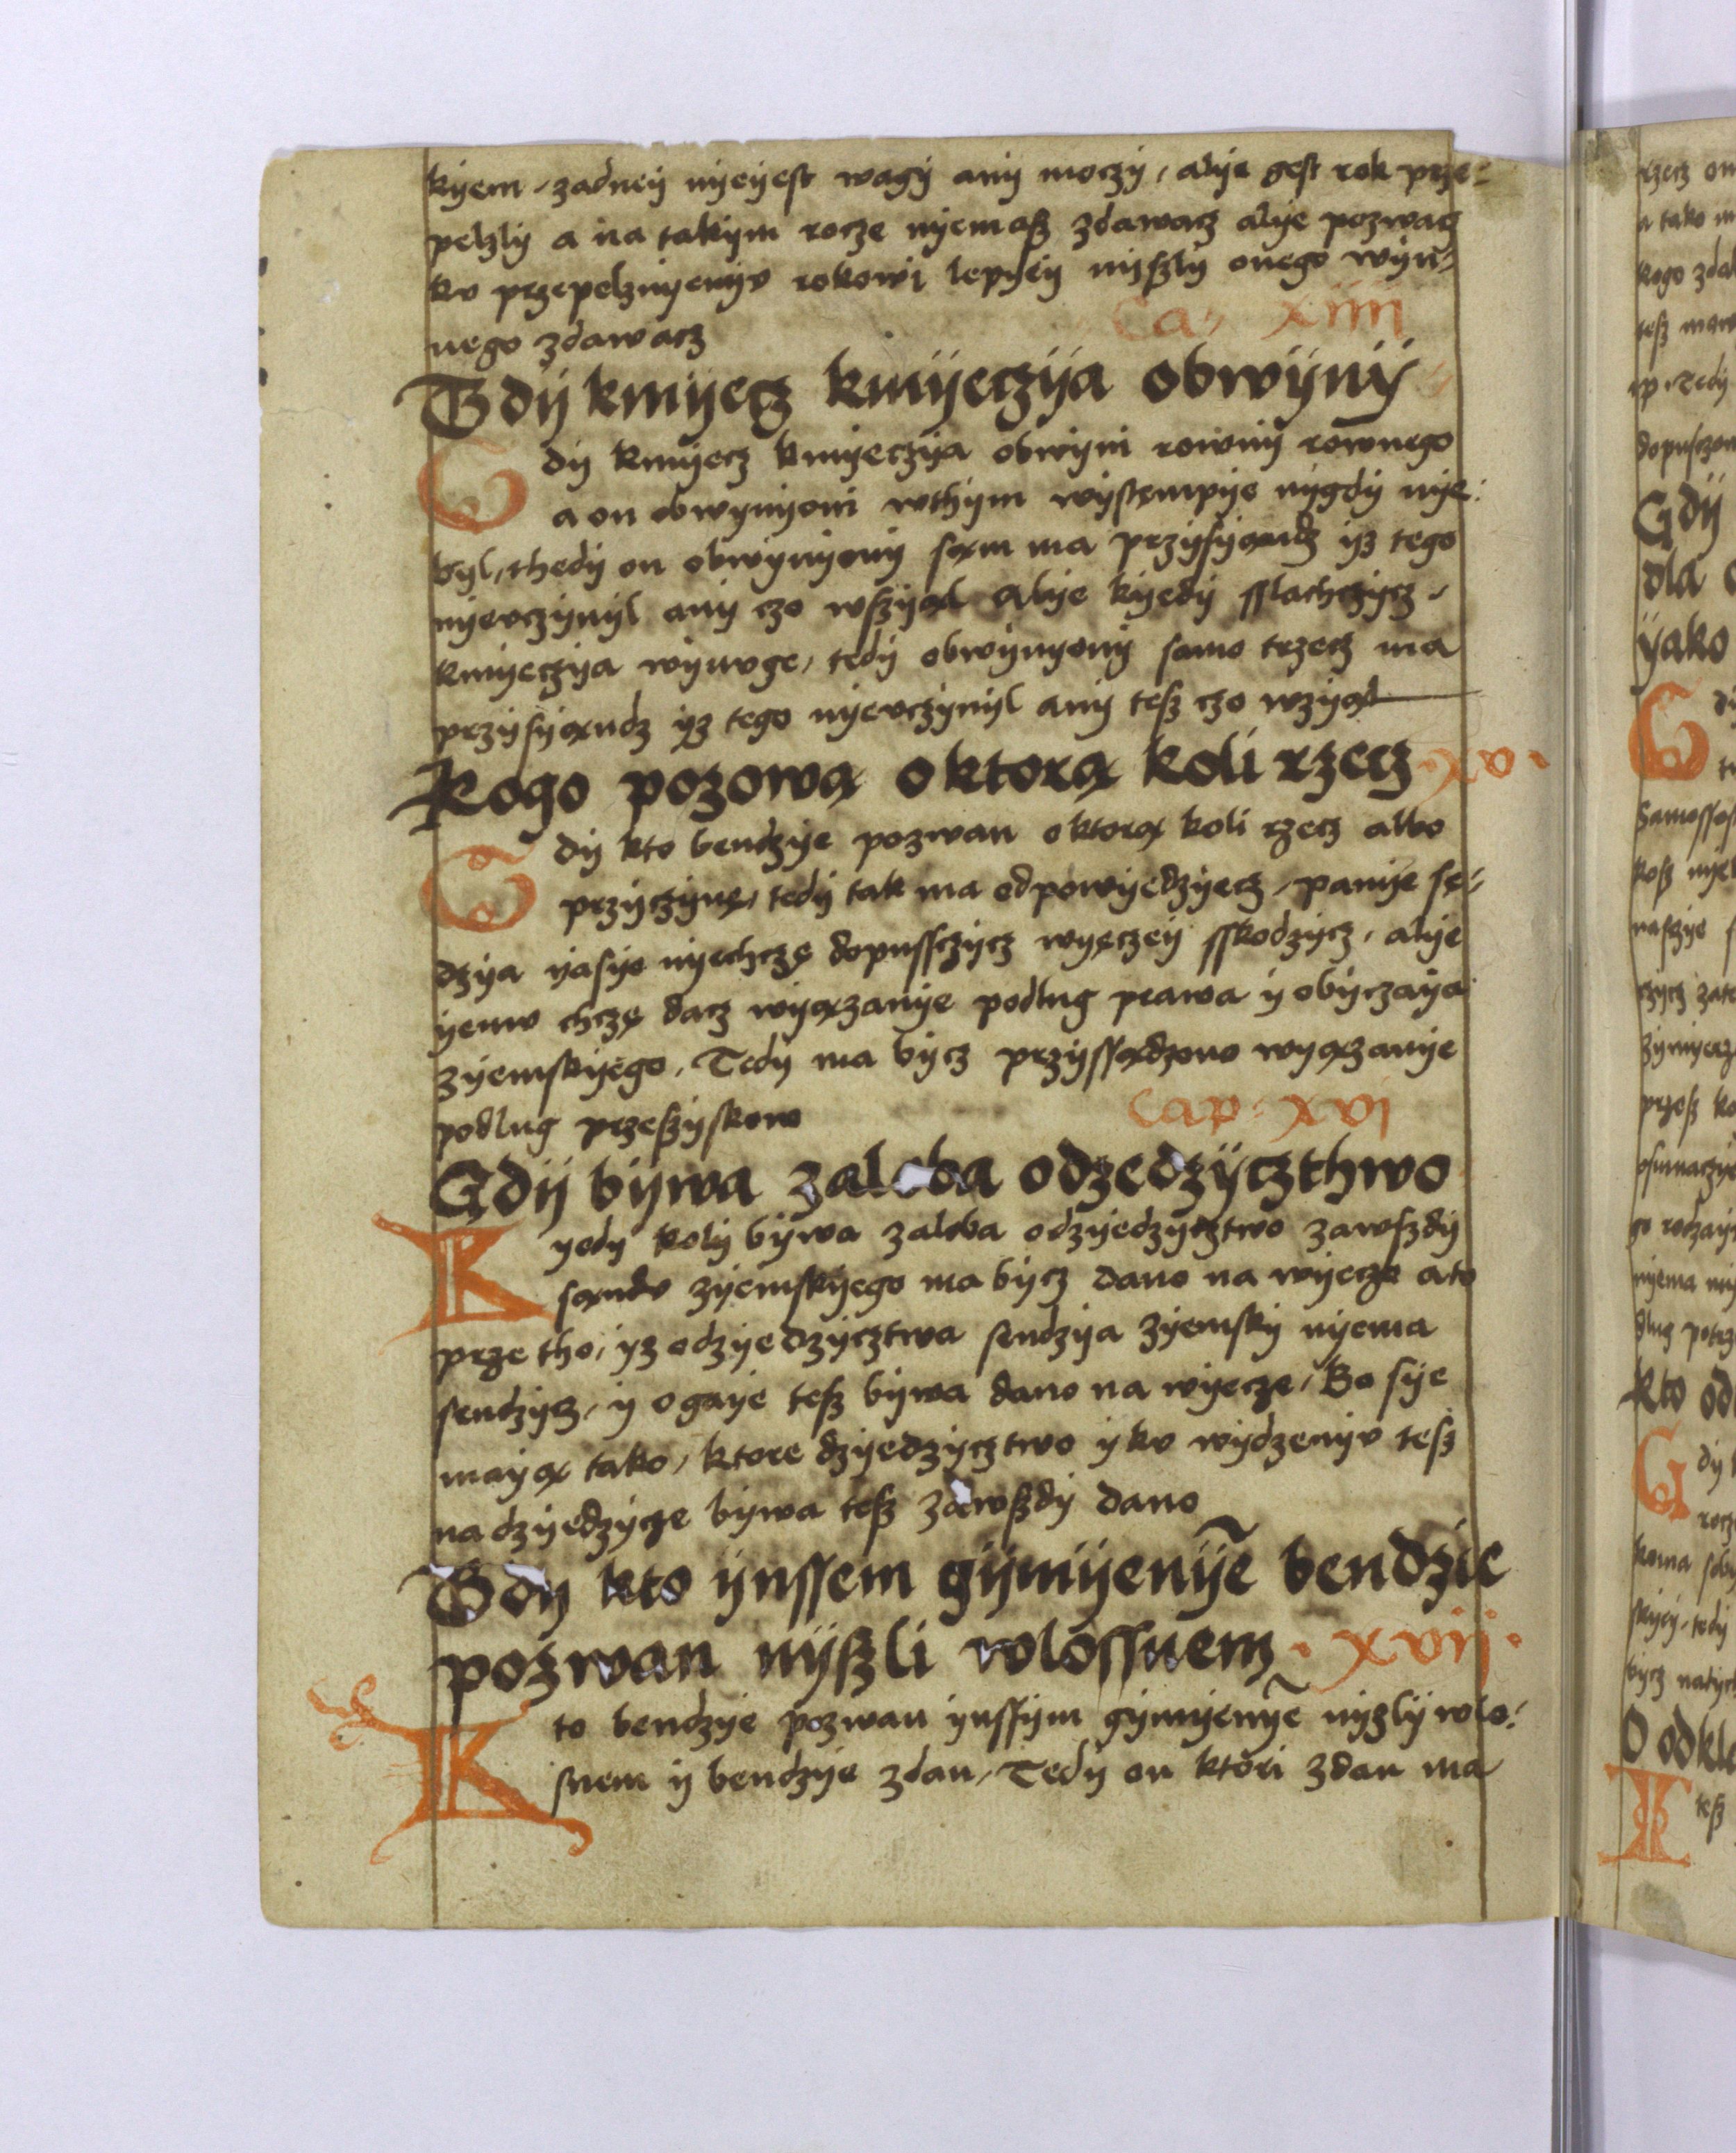 kyem / zadney nyeyest wagy any moczy / alye gest rok prze-
pelzly a na takym rocze nyemaß zdawacz alye pozwacz
kv przepelznyenyv rokowi lepyey nyßly onego wyn-
nego zdawacz
Ca, xiiii
Gdy kmyecz kmyeczya obwyny
Gdy kmyecz kmyeczya obwyni rowny rownego
a on obwynyoni wthym wystempye nygdy nye-
byl, thedy on obwynyony sąm ma przysyąndz yz tego
nyevczynyl any czo wßyął Alye kyedy sslachczycz /
kmyeczya wynvge, tedy obwynyony samo trzecz ma
przysyąndz yz tego nyevczynyl any teß czo wzyął
Kogo pozową o ktorą koli rzecz xv
Gdy kto bendzye pozwan o ktorą koli rzecz albo
przyczynę, tedy tak ma odpowyedzyecz / panye sę-
dzya yasye nyechczę dopussczycz wyęczey sskodzycz, alye
yemv chczę dacz wyązanye podlug prawa y obyczaya
zyemskyego, Tedy ma bycz przyssądzono wyązanye
podlug przeßyskow
Cap xvi
Gdy bywa zaloba odzedzyczthwo
Kyedy koly bywa zaloba odzyedzycztwo zawßdy
sąndv zyemskyego ma bycz dano na wyecze a to
prze tho, yz odzyedzycztwa sendzya zyemsky nyema
sendzycz, y o gaye teß bywa dano na wyecze, Bo sye
mayą tako, ktore dzyedzycztwo y kv wydzenyv teß
na dzyedzycze bywa teß zawßdy dano
Gdy kto ynssem gymyenye̅ bendzie
pozwan nyßli wlossnem xvij
Kto bendzye pozwan ynssym gymyenye̅ nyzly wlo-
snem y bendzye zdan, Tedy on ktori zdan ma